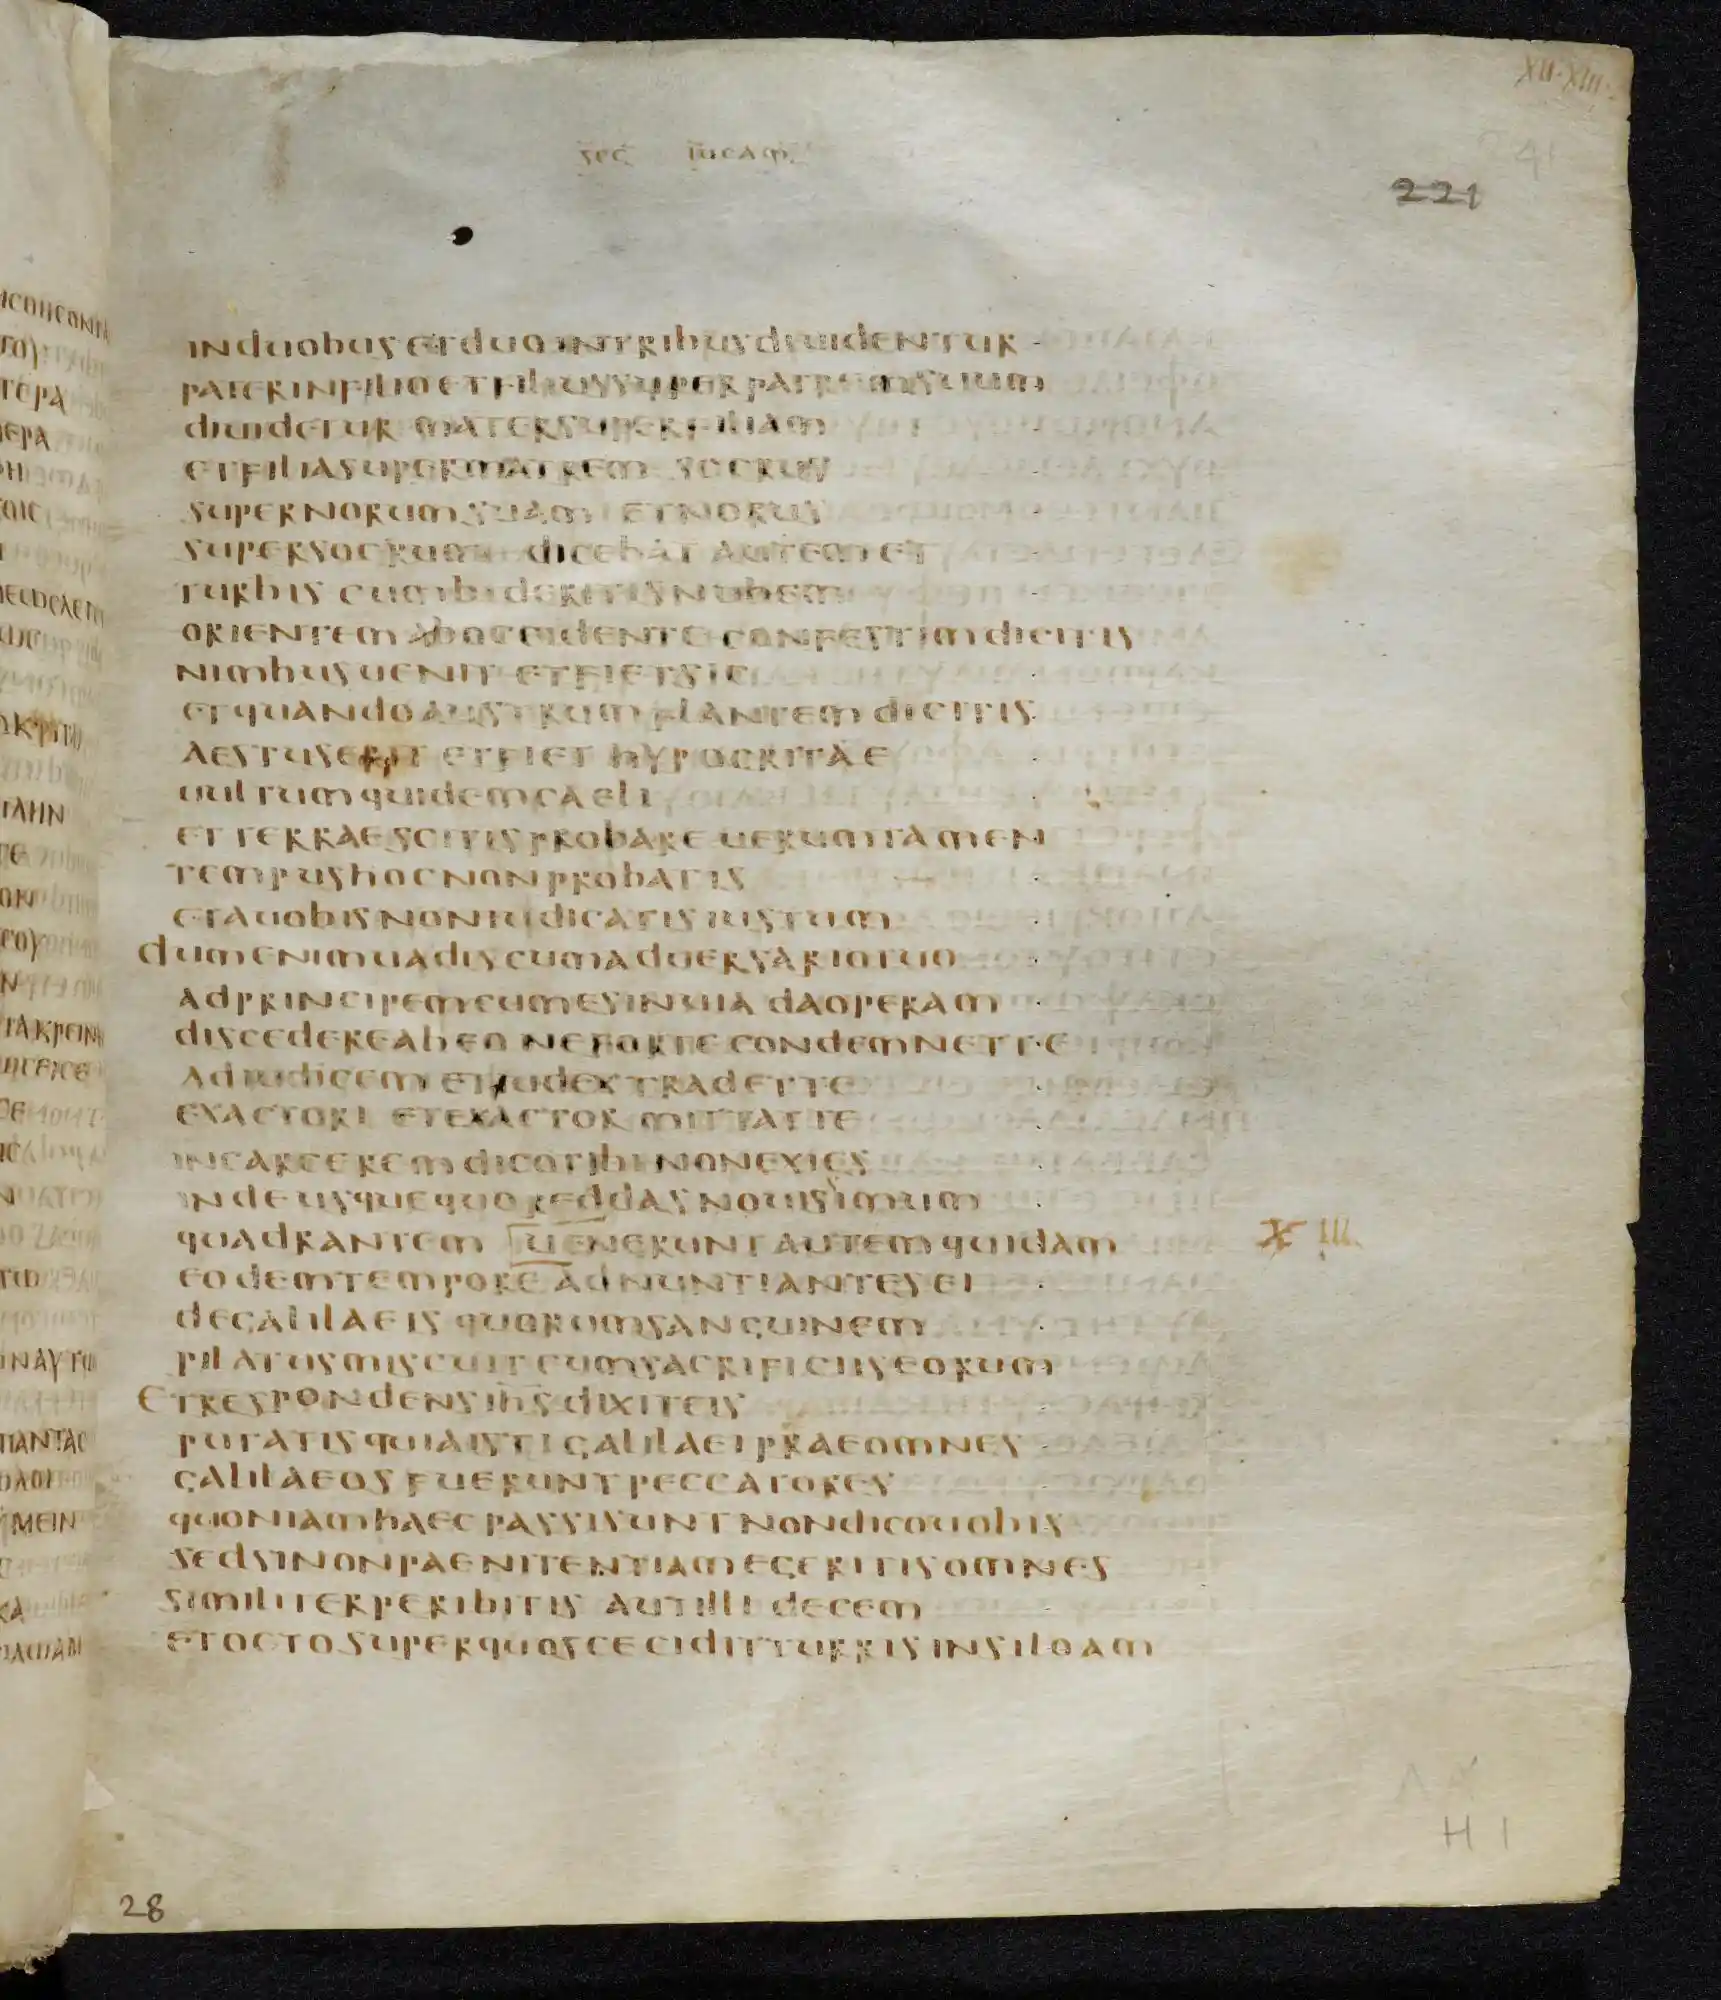 XII·XIII·
sec lucam
221
induobus et duo intribus diuidentur
pater infilio et filius super patrem suum
diuidetur mater super filiam
et filia super matrem socrus
super norum suam et norus
super socrum dicebat autem et
turbis cum bideritis nubem
orientem ab occidente confestim dicitis
nimbus uenit et fiet sic
et quando austrum flantem dicitis
aestus erit et fiet hypocritae
uultum quidem caeli
et terrae scitis probare uerumtamen
tempus hoc non probatis
et a uobis non iudicatis iustum
dum enim uadis cum aduersario tuo
ad principem cum es in uia da operam
discedere ab eo ne forte condemnet te
ad iudicem et iudex tradet te
exactori et exactor mittat te
in carcerem dico tibi non exies
inde usque quo reddas nouisimum
quadrantem uenerunt autem quidam
XIII
eodem tempore adnuntiantes ei
de galilaeis quorum sanguinem
pilatus miscuit cum sacrificiis eorum
et respondens ihs dixit eis
putatis quia isti galilaei prae omnes
galilaeos fuerunt peccatores
quoniam haec passi sunt non dico uobis
sed si non paenitentiam egeritis omnes
similiter peribitis aut illi decem
et octo super quos cecidit turris in siloam
H 1
28